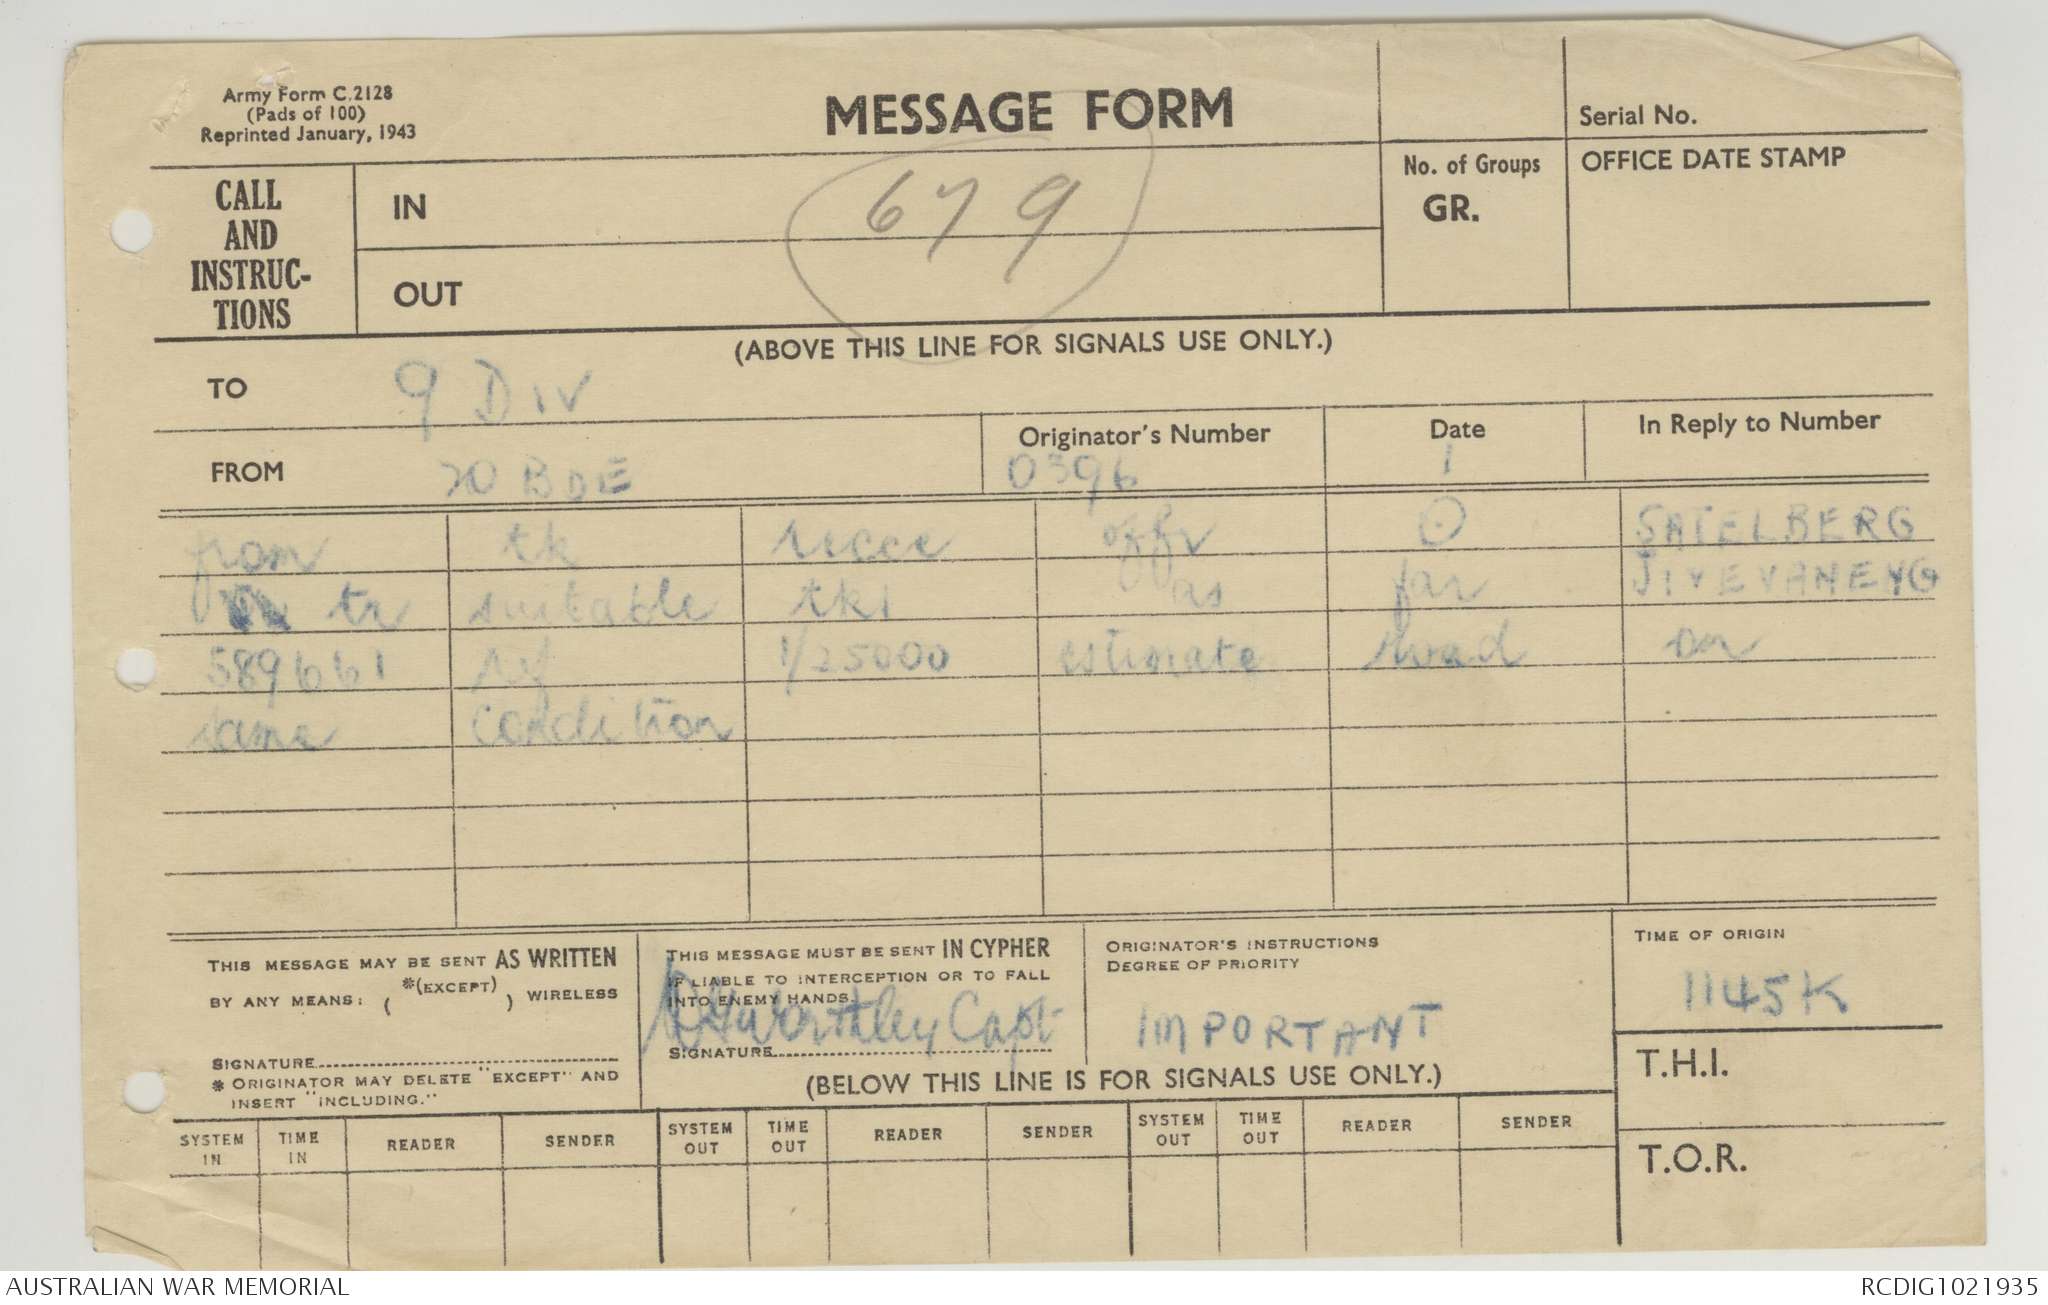 Army Form C.2128
(Pads of 100)
Reprinted January, 1943
MESSAGE FORM
Serial No.
CALL AND INSTRUC-TIONS
IN
679
No. of Groups
GR.
OFFICE DATE STAMP
OUT
(ABOVE THIS LINE FOR SIGNALS USE ONLY.)
TO 9 DIV
FROM 20 BDE
Originator's Number 0396
Date 1
In Reply to Number
from tk recce offr ⊙ SATELBERG
tr suitable tks as far JIVEVANENG
589661 ref 1/25000 estimate road on
same condition
THIS MESSAGE MAY BE SENT AS WRITTEN
BY ANY MEANS: ( *(EXCEPT) ) WIRELESS
SIGNATURE
* ORIGINATOR MAY DELETE "EXCEPT" AND
INSERT "INCLUDING."
THIS MESSAGE MUST BE SENT IN CYPHER
IF LIABLE TO INTERCEPTION OR TO FALL
INTO ENEMY HANDS.
Worthley Capt
SIGNATURE
ORIGINATOR'S INSTRUCTIONS
DEGREE OF PRIORITY
IMPORTANT
TIME OF ORIGIN
1145K
(BELOW THIS LINE IS FOR SIGNALS USE ONLY.)
T.H.I.
SYSTEM IN TIME IN READER SENDER SYSTEM OUT TIME OUT READER SENDER SYSTEM OUT TIME OUT READER SENDER
T.O.R.
AUSTRALIAN WAR MEMORIAL
RCDIG1021935